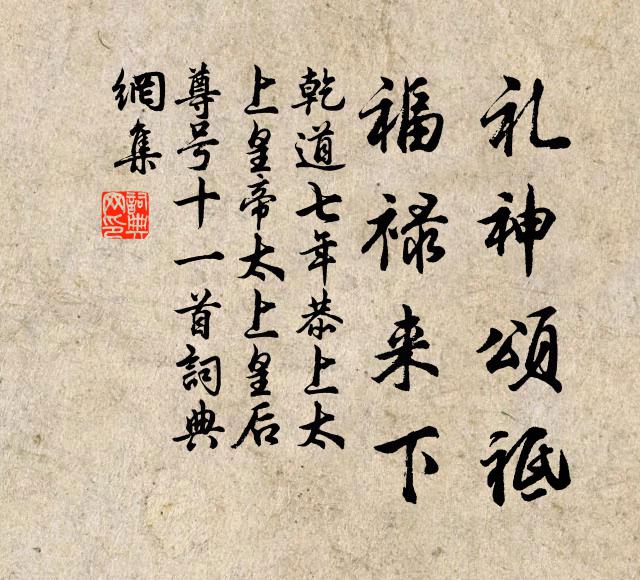 礼神頌祗
福禄来下
乾道七年恭上太
上皇帝太上皇后
尊号十一首詞典
網集
詞典
网印